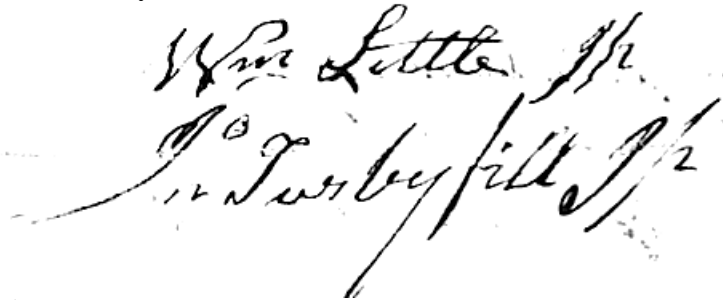 Wm Little Jp
Jno Turbyfill Jp